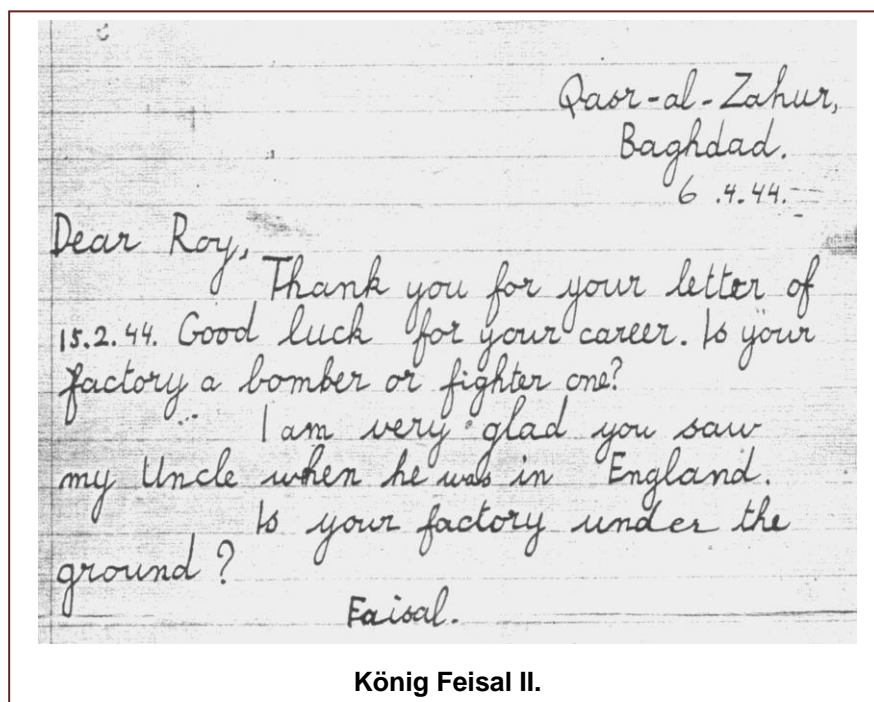 Qasr-al-Zahur,
Baghdad.
6.4.44.
Dear Roy,
Thank you for your letter of
15.2.44. Good luck for your career. Is your
factory a bomber or fighter one?
I am very glad you saw
my Uncle when he was in England.
Is your factory under the
ground?
Faisal.
König Feisal II.